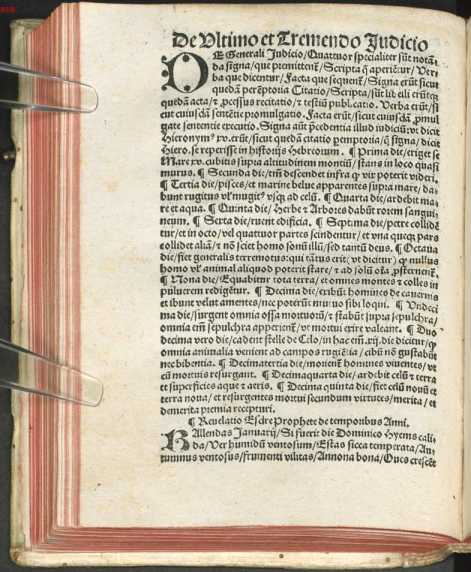 De Ultimo et Tremendo Judicio
DE Generali Judicio/Quattuor specialiter sūt notā
da signa/que premittent̄/Scripta q̄ aperiēt̄/Ver
ba que dicentur/Facta que sequent̄/Signa erūt sicut
quedā perēptoria Citatio/Scripta/sūt lib elli erūtq̄
quedā acta/et p̄cessus recitatio/et testiū publicatio. Verba erūt/si
cut cuiusdā sentētie promulgatio. Facta erūt/sicut cuiusdā p̄mul
gate sententie executio. Signa aūt p̄cedentia illud iudiciū: vt dicit
Hieronymꝰ xv. erūt/sicut quedā citatio peremptoria/q̄ signa/dicit
Hiero. se reperisse in historijs Hebreorum. ¶ Prima die/eriget se
Mare xv. cubitis supra altitudinem montiū/stans in loco quasi
murus. ¶ Secunda die/tm̄ descendet infra q̄ vir poterit videri.
¶ Tertia die/pisces/et marine belue apparentes supra mare/da
bunt rugitus vl' mugitꝰ vsq̄ ad celū. ¶ Quarta die/ardebit ma
re et aqua. ¶ Quinta die/Herbe et Arbores dabūt rorem sangui
neum. ¶ Sexta die/ruent edificia. ¶ Septima die/petre collidēt
tur/et in octo/vel quattuor partes scindentur/et vna queq̄ pars
collidet aliā/et nō sciet homo sonū illū/sed tantū deus. ¶ Octaua
die/fiet generalis terremotus: qui tātus erit/vt dicitur) q̄ nullus
homo vl' animal aliquod poterit stare/et ad solū oīa p̄sternent̄.
¶ Nona die/Equabitur tota terra/et omnes montes et colles in
puluerem redigētur. ¶ Decima die/exibūt homines de cauernis
et ibunt velut amentes/nec poterūt mutuo sibi loqui. ¶ Undeci
ma die/surgent omnia ossa mortuorū/et stabūt supra sepulchra/
omnia em̄ sepulchra apperient̄/vt mortui exire valeant. ¶ Duo
decima vero die/cadent stelle de Celo/in hac em̄.xij.die dicitur/q̄
omnia animalia venient ad campos rugiētia/cibū nō gustabūt
nec bibentia. ¶ Decimatertia die/morient̄ homines viuentes/vt
cū mortuis resurgant. ¶ Decimaquarta die/ardebit celū et terra
et superficies aque et aeris. ¶ Decima quinta die/fiet celū nouū et
terra noua/et resurgentes mortui secundum virtutes/merita/et
demerita premia recepturi.
¶ Reuelatio Esdre Prophete de temporibus Anni.
KAllendas Januarij/Si fuerit die Dominico Hyems cali
da/Ver humidū ventosum/Estas sicca temperata/Au
tumnus ventosus/frumenti vilitas/Annona bona/Oues crescēt